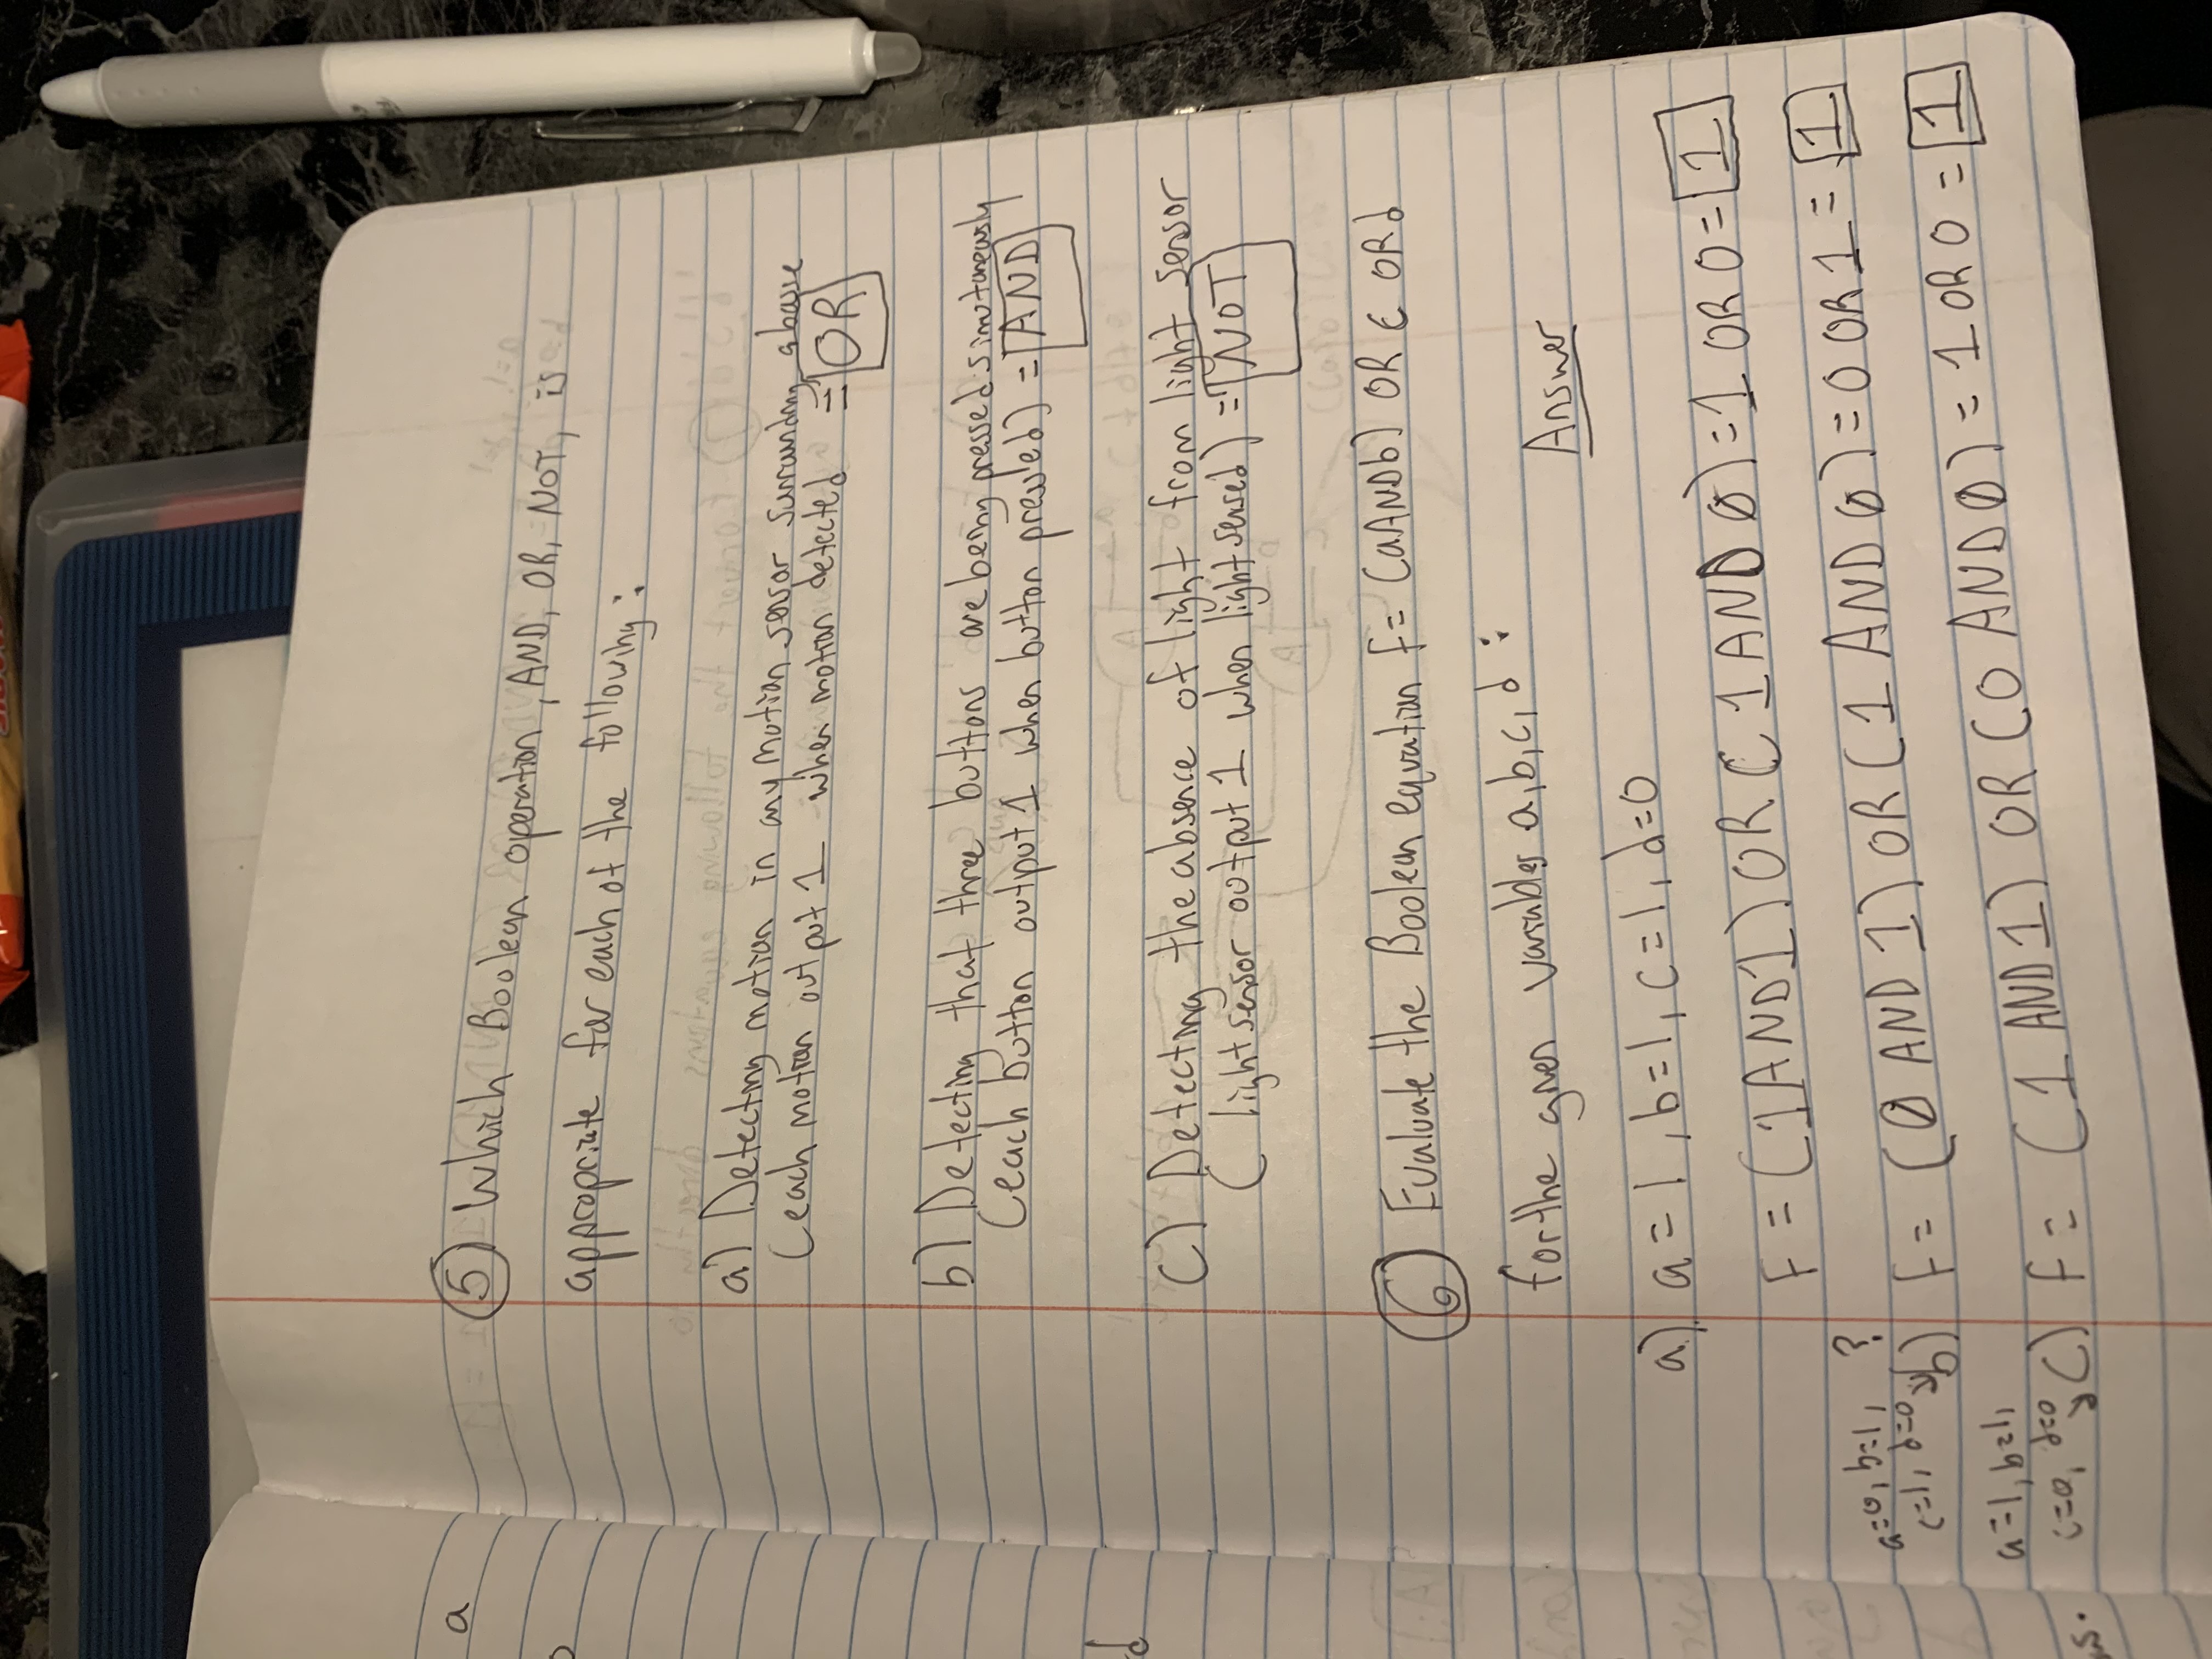 a
d
ns.
5) Which Boolean operation, AND, OR, NOT, is
appropriate for each of the following:
a) Detecting motion in any motion sensor surrounding a house
(each motion output 1 when motion detected = OR
b) Detecting that three buttons are being pressed simutaneously
(each button output 1 when button pressed) = AND
c) Detecting the absence of light from light sensor
(light sensor output 1 when light sensed) = NOT
6) Evaluate the Boolean equation F= (aANDb) OR C ORd
for the given variables a,b,c,d:
Answer
a) a=1, b=1, c=1, d=0
F=(1AND1) OR (1AND0)=1 OR 0=1
a=0, b=1, ?
c=1, d=0
b) F=(0 AND 1) OR (1 AND 0)=0 OR 1=1
a=1, b=1,
c=0, d=0
C) F= (1 AND1) OR (0 AND0)=1 OR 0=1